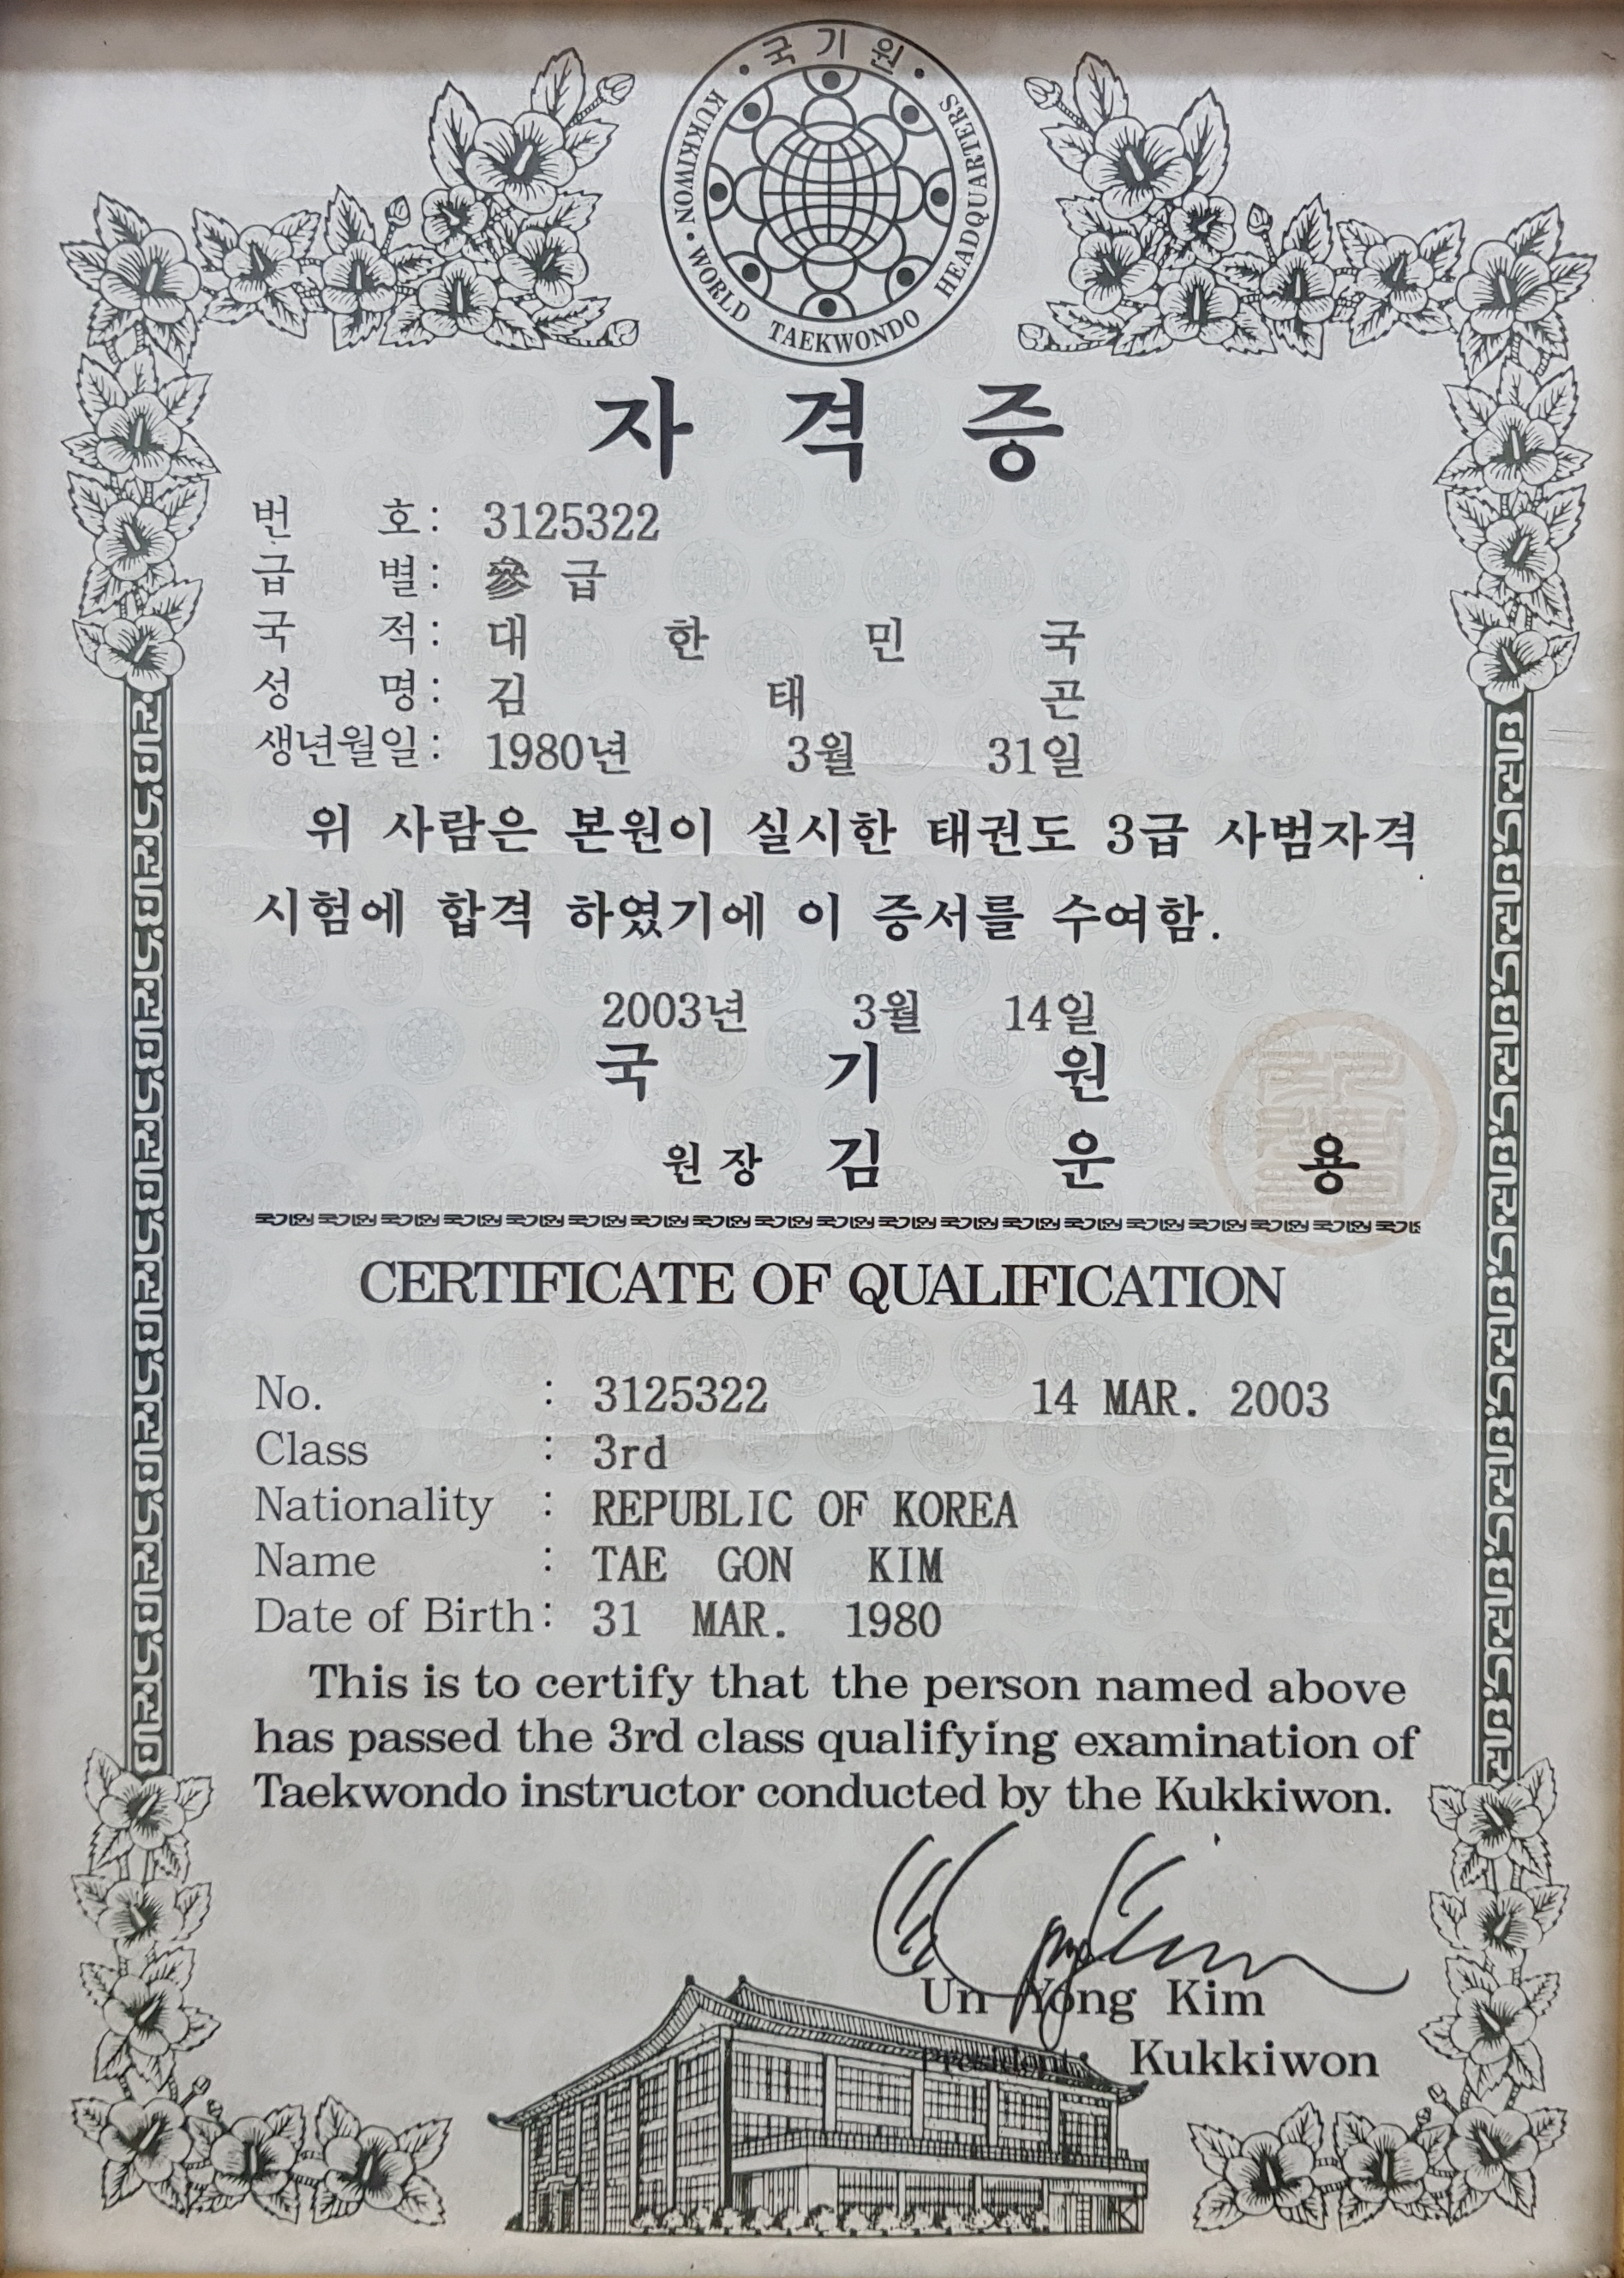 국기원
KUKKIWON · WORLD TAEKWONDO HEADQUARTERS
자 격 증
번 호: 3125322
급 별: 參 급
국 적: 대 한 민 국
성 명: 김 태 곤
생년월일: 1980년 3월 31일
위 사람은 본원이 실시한 태권도 3급 사범자격
시험에 합격 하였기에 이 증서를 수여함.
2003년 3월 14일
국 기 원
원장 김 운 용
CERTIFICATE OF QUALIFICATION
No. : 3125322 14 MAR. 2003
Class : 3rd
Nationality : REPUBLIC OF KOREA
Name : TAE GON KIM
Date of Birth : 31 MAR. 1980
This is to certify that the person named above
has passed the 3rd class qualifying examination of
Taekwondo instructor conducted by the Kukkiwon.
Un Yong Kim
President Kukkiwon